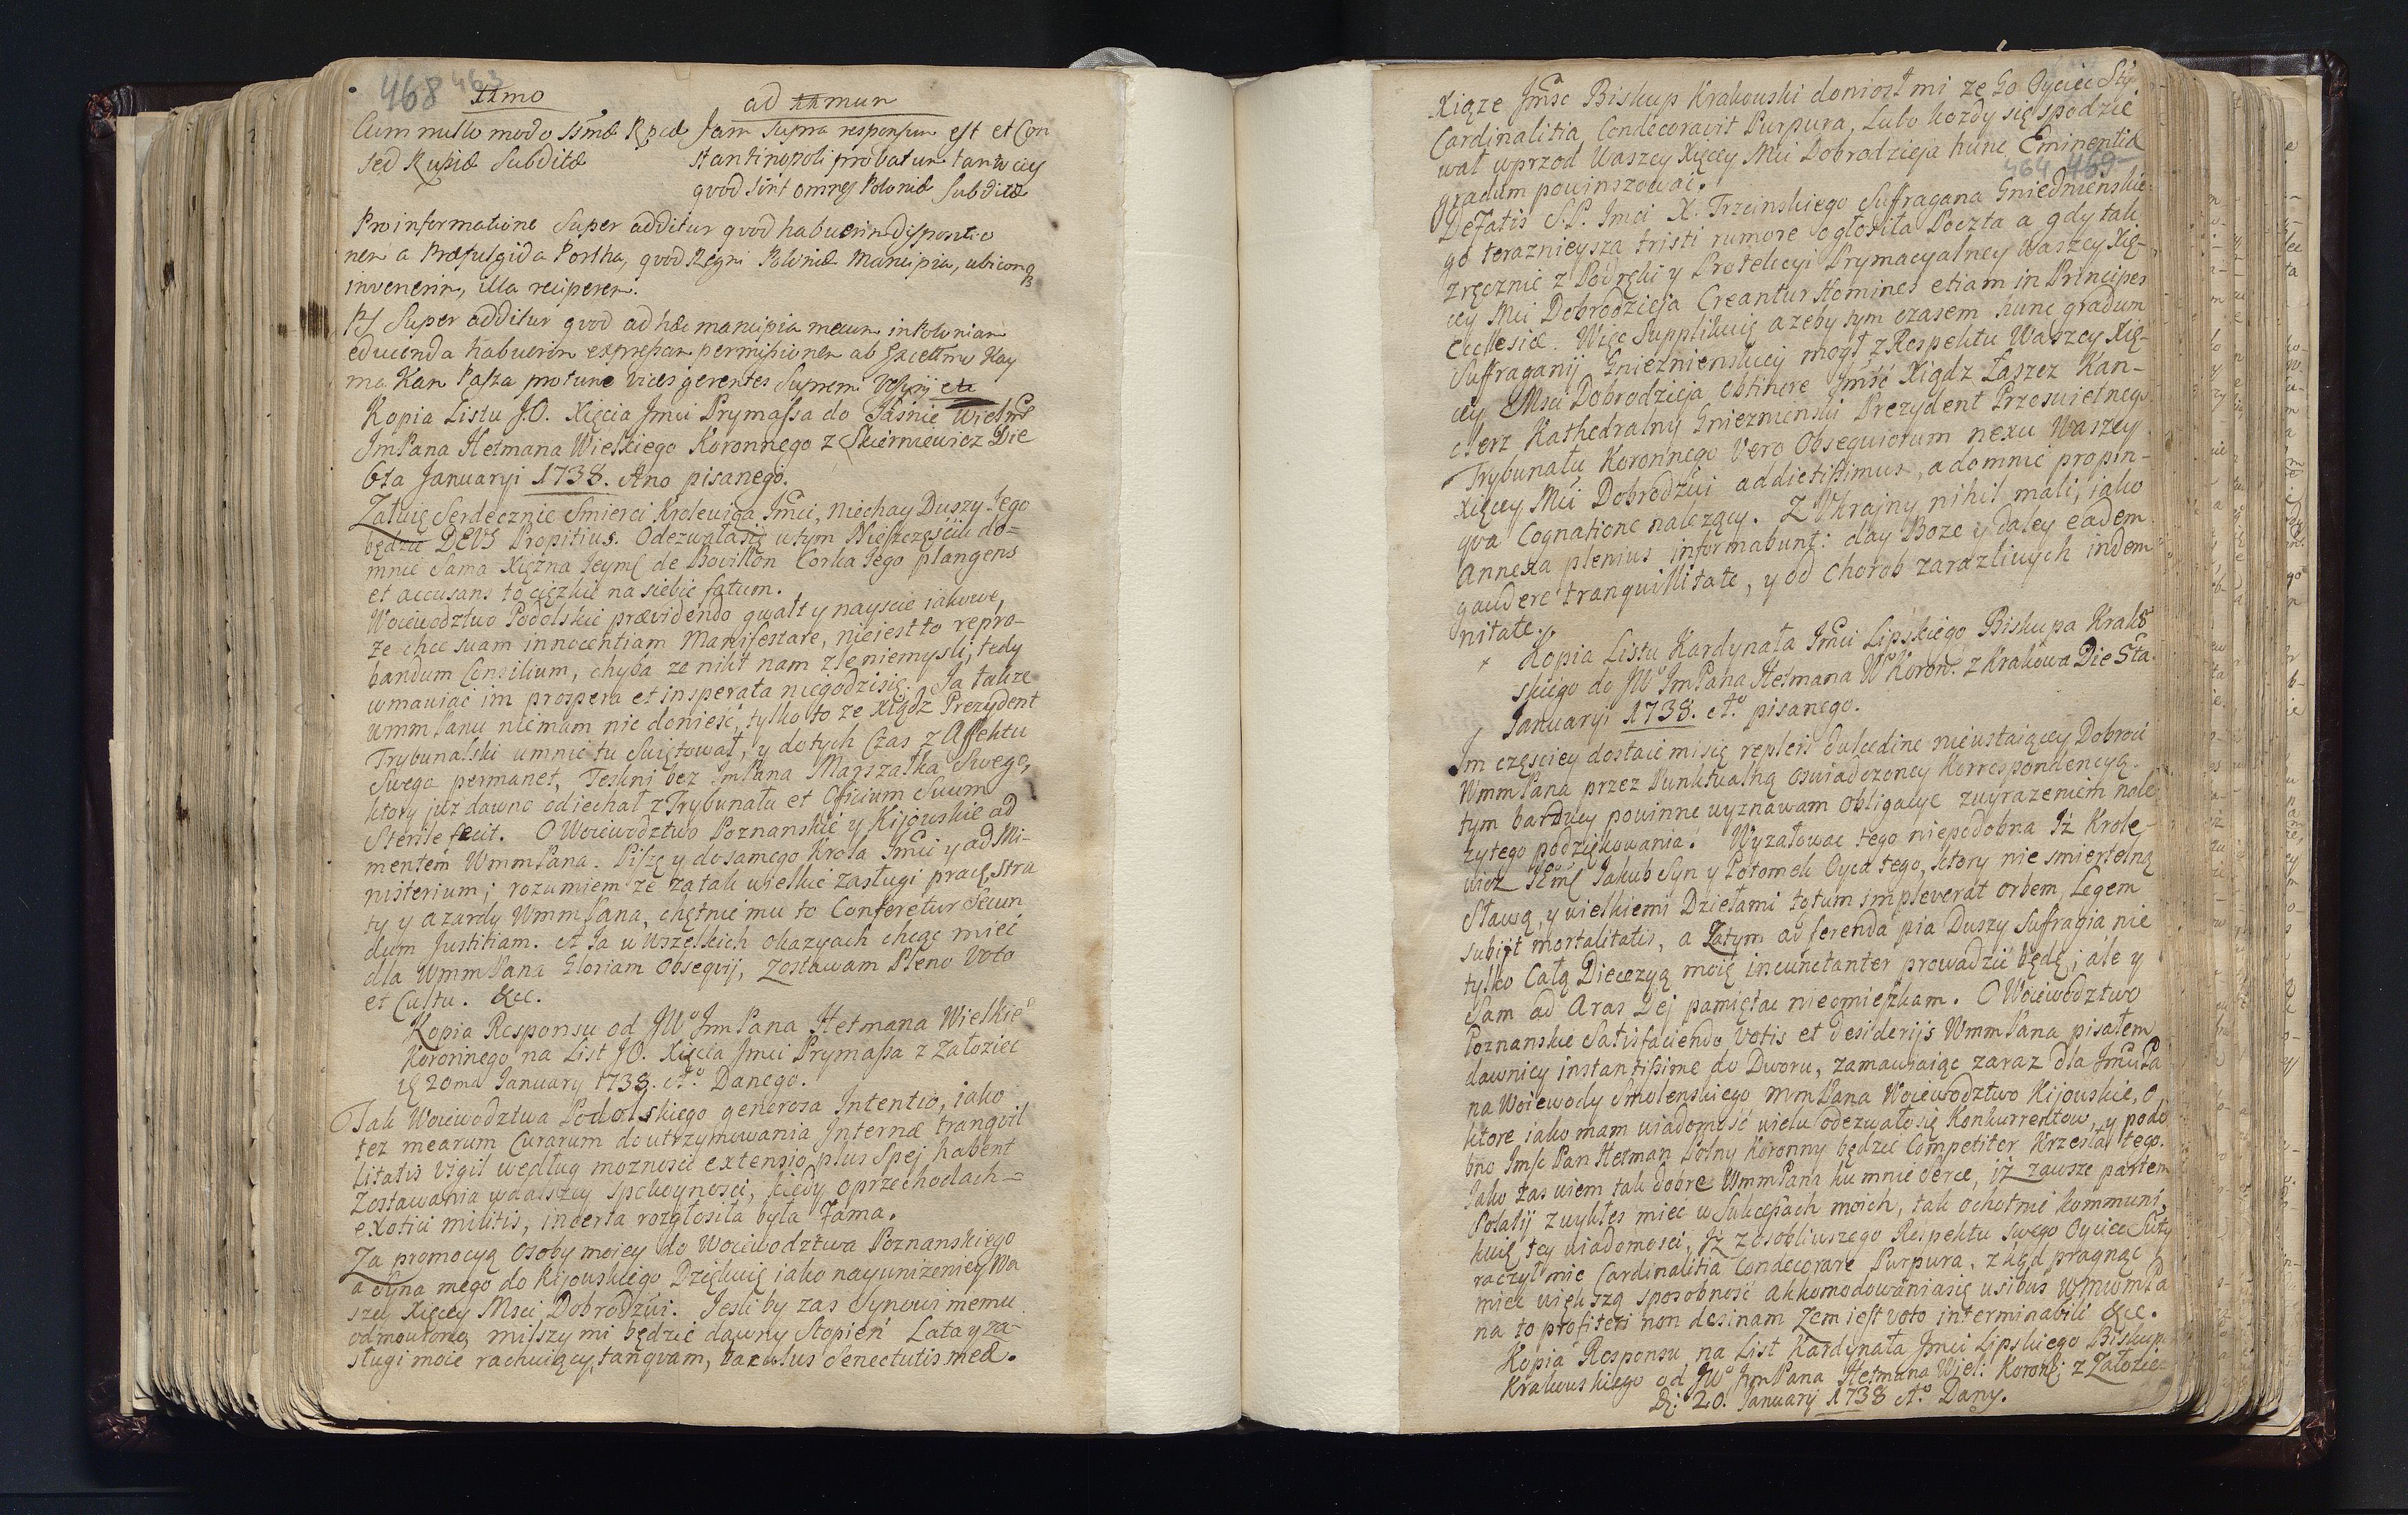 468 463
11mo
ad 11mum
Cum nullo modo sint Rplcæ Jam supra responsum est et Con
sed Russiæ Subditæ stantinopoli probatur
quod sint omnes Poloniæ Subditæ
Pro informatione Super additur quod habuerim dispositio
nem a Præfulgida Portha, quod Regni Poloniæ Mancipia, ubicunq
invenerim, illa reciperem.
PS Super additur quod ad hæc mancipia mecum in Poloniam
educenda habuerim expressam permissionem ab Excellmo Kay
ma Kan Pasza pro tunc vices gerentes Supremi Vesirij etc
Kopia Listu J.O. Xięcia Jmci Prymassa do Jaśnie Wielmo
Jmpana Hetmana Wielkiego Koronnego z Skierniewicz Die
6ta Januaryi 1738. Ano pisanego.
Załuię Serdecznie Smierci Krolewica Jmci, niechay Duszy Jego
będzie DEUS Propitius. Odezwałasię w tym Nieszczęściu do=
mnie Sama Xiężna Jeymć de Bouillon Corka Jego plangens
et accusans to ciężkie na siebie fatum.
Woiewodztwo Podolskie prævidendo gwałt y nayscie iakowe,
ze chce suam innocentiam Manifestare, nieiest to repro-
bandum Consilium, chyba ze nikt nam zle niemysli, tedy
wmawiać im prospera et insperata niegodzisię. Ja także
WmmPanu niemam nic donieść, tylko to ze Xiądz Prezydent
Trybunalski umnie tu Swiętował, y do tych Czas z Affektu
Swego permanet, Teskni bez JmPana Marszałka Swego,
ktory juz dawno odiechał z Trybunału et Officium Suum
Sterile fecit. O Woiewodztwo Poznanskie y Kijowskie ad
mentem WmmPana. Piszę y do samego Krola Jmci y ad Mi-
nisterium; rozumiem ze za tak wielkie zasługi prace, stra
ty y azardy WmmPana, chętnie mu to Conferetur Secun
dum Justitiam. A Ja w Wszelkich okazyach chcąc mieć
dla WmmPana Gloriam Obsequij, zostawam Pleno Voto
et Cultu. &c.
Kopia Responsu od JWo JmPana Hetmana Wielkieo
Koronnego na List JO. Xięcia Jmci Prymassa z Załoziec
20ma January 1738. Ao. Danego.
Jak Woiewodztwa Podolskiego generosa Intentio, iako
tez mearum Curarum do utrzymowania Internæ tranquil
litatis vigil według moznosci extensio plus Spej habent
zostawania w dalszey spokoynosci, kiedy o przechodach=
exotici militis, incerta rozgłosiła była Fama.
Za promocyą Osoby moiey do Woiewodztwa Poznanskiego
a Syna mego do Kijowskiego Dziękuię iako nayunizeniey Wa
szey Xięcey Msci Dobrodźiei. Jesliby zas Synowi memu
odmowiono, milszy mi będzie dawny Stopień Lata y za-
sługi moie rachuiący, tanquam, baculus Senectutis meæ.
Xiąze Jmść Biskup Krakowski doniosł mi ze Go Oyciec Sty
Cardinalitia Condecoravit Purpura, Lubo kozdy się spodzie
wał wprzod Waszey Xięcey Mci Dobrodzieja hunc Eminentiæ
464 469
gradum powinszować.
De Fatis S.P. Jmci X. Trzcinskiego Suffragana Gnieźnienskie
go teraznieysza tristi rumore ogłosiła Poczta a gdy tak
zręcznie z Poręki y Protekcyi Prymacyalney Waszey Xię-
cey Mci Dobrodzieja Creantur Homines etiam in Principes
Ecclesiæ. Więc Supplikuię azeby tym czasem hunc gradum
Suffraganij Gnieznienskiey mogł z Respektu Waszey Xię-
cey Msci Dobrodzieja obtinere Jmść Xiądz Łaszcz Kan-
clerz Kathedralny Gnieznienski Prezydent Przeswietnego
Trybunału Koronnego Vero Obsequiorum nexu Waszey
Xięcey Mci Dobrodźiei addictissimus, a do mnie propin-
qua Cognatione nalezący. Z Ukrajny nihil mali, iako
Annexa plenius informabunt: day Boze y daley eadem
gaudere tranquillitate, y od chorob zarazliwych indem
nitate.
Kopia Listu Kardynała Jmci Lipskiego Biskupa Krako
skiego do JWo JmPana Hetmana W Koron. z Krakowa Die 5ta
Januaryi 1738. Ao. pisanego.
Im częsciey dostaie misię repleri dulcedine nieustaiącey Dobroci
WmmPana przez Punktualną oswiadczoney Korrespondencyą.
tym bardziey powinne wyznawam obligacye zwyrazeniem nale
zytego podziękowania. Wyzałować tego niepodobna Iż Krole
wicz Jemć Jakub Syn y Potomek Oyca tego, ktory nie smiertelną
Sławą, y wielkiemi Dziełami totum impleverat orbem, Legem
subijt mortalitatis, a Zatym ad ferenda pia Duszy Suffragia nie
tylko Całą Diecezyą moię incunctanter prowadzić będę, ale y
Sam ad Aras Dej pamiętac nieomieszkam. O Woiewodztwo
Poznanskie Satisfaciendo Votis et desiderijs WmmPana pisałem
dawniey instantissime do Dworu, zamawiaiąc zaraz dla JmciPa
na Woiewody Smolenskiego MmPana Woiewodztwo Kijowskie, o
ktore iako mam wiadomość wielu odezwałosię Konkurrentow, y podo
bno Jmść Pan Hetman Polny Koronny będzie Competitor Krzesła tego.
Jako zas wiem tak dobre WmmPana ku mnie serce, iż zawsze partem
Solatij zwykłes miec w Sukcesach moich, tak ochotnie kommuni-
kuię tey wiadomosci, Iż z osobliwszego Respektu swego Oyciec Sty
raczył mie Cardinalitia Condecorare Purpura, z kąd pragnąc
miec większą sposobność akkomodowaniasię usibus WMWmPa
na to profiteri non desinam Zem iest voto interminabili &c.
Kopia Responsu na List Kardynała Jmci Lipskiego Biskup.
Krakowskiego od JWo JmPana Hetmana Wiel: Koron: z Załoziec
D: 20. January 1738 Ao. Dany.